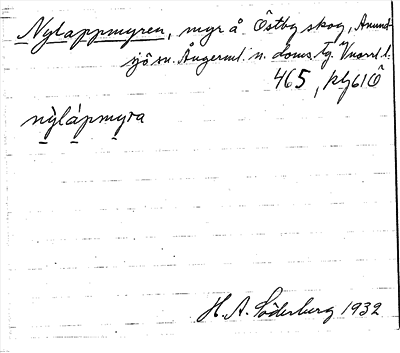 Nylappmyren, myr å Östby skog, Anund-
sjö sn. Ångerml. n. doms. tg. Vnorrl. l.
465, kbl 61 Ö
nylápmyra
H. A. Söderberg 1932